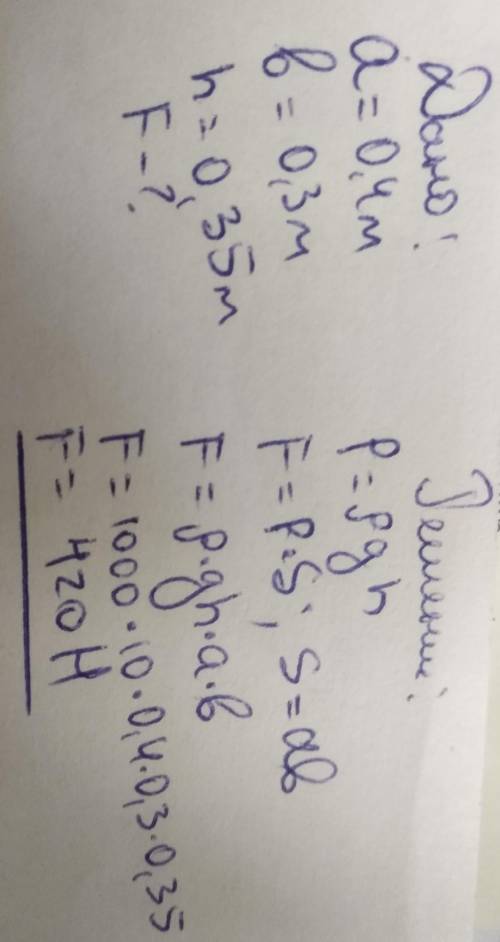 Дано:
a = 0,4м
b = 0,3м
h = 0,35м
F - ?
Решение:
P = ρgh
F = P·S; S = ab
F = ρ·gh·a·b
F = 1000·10·0,4·0,3·0,35
F = 420 H